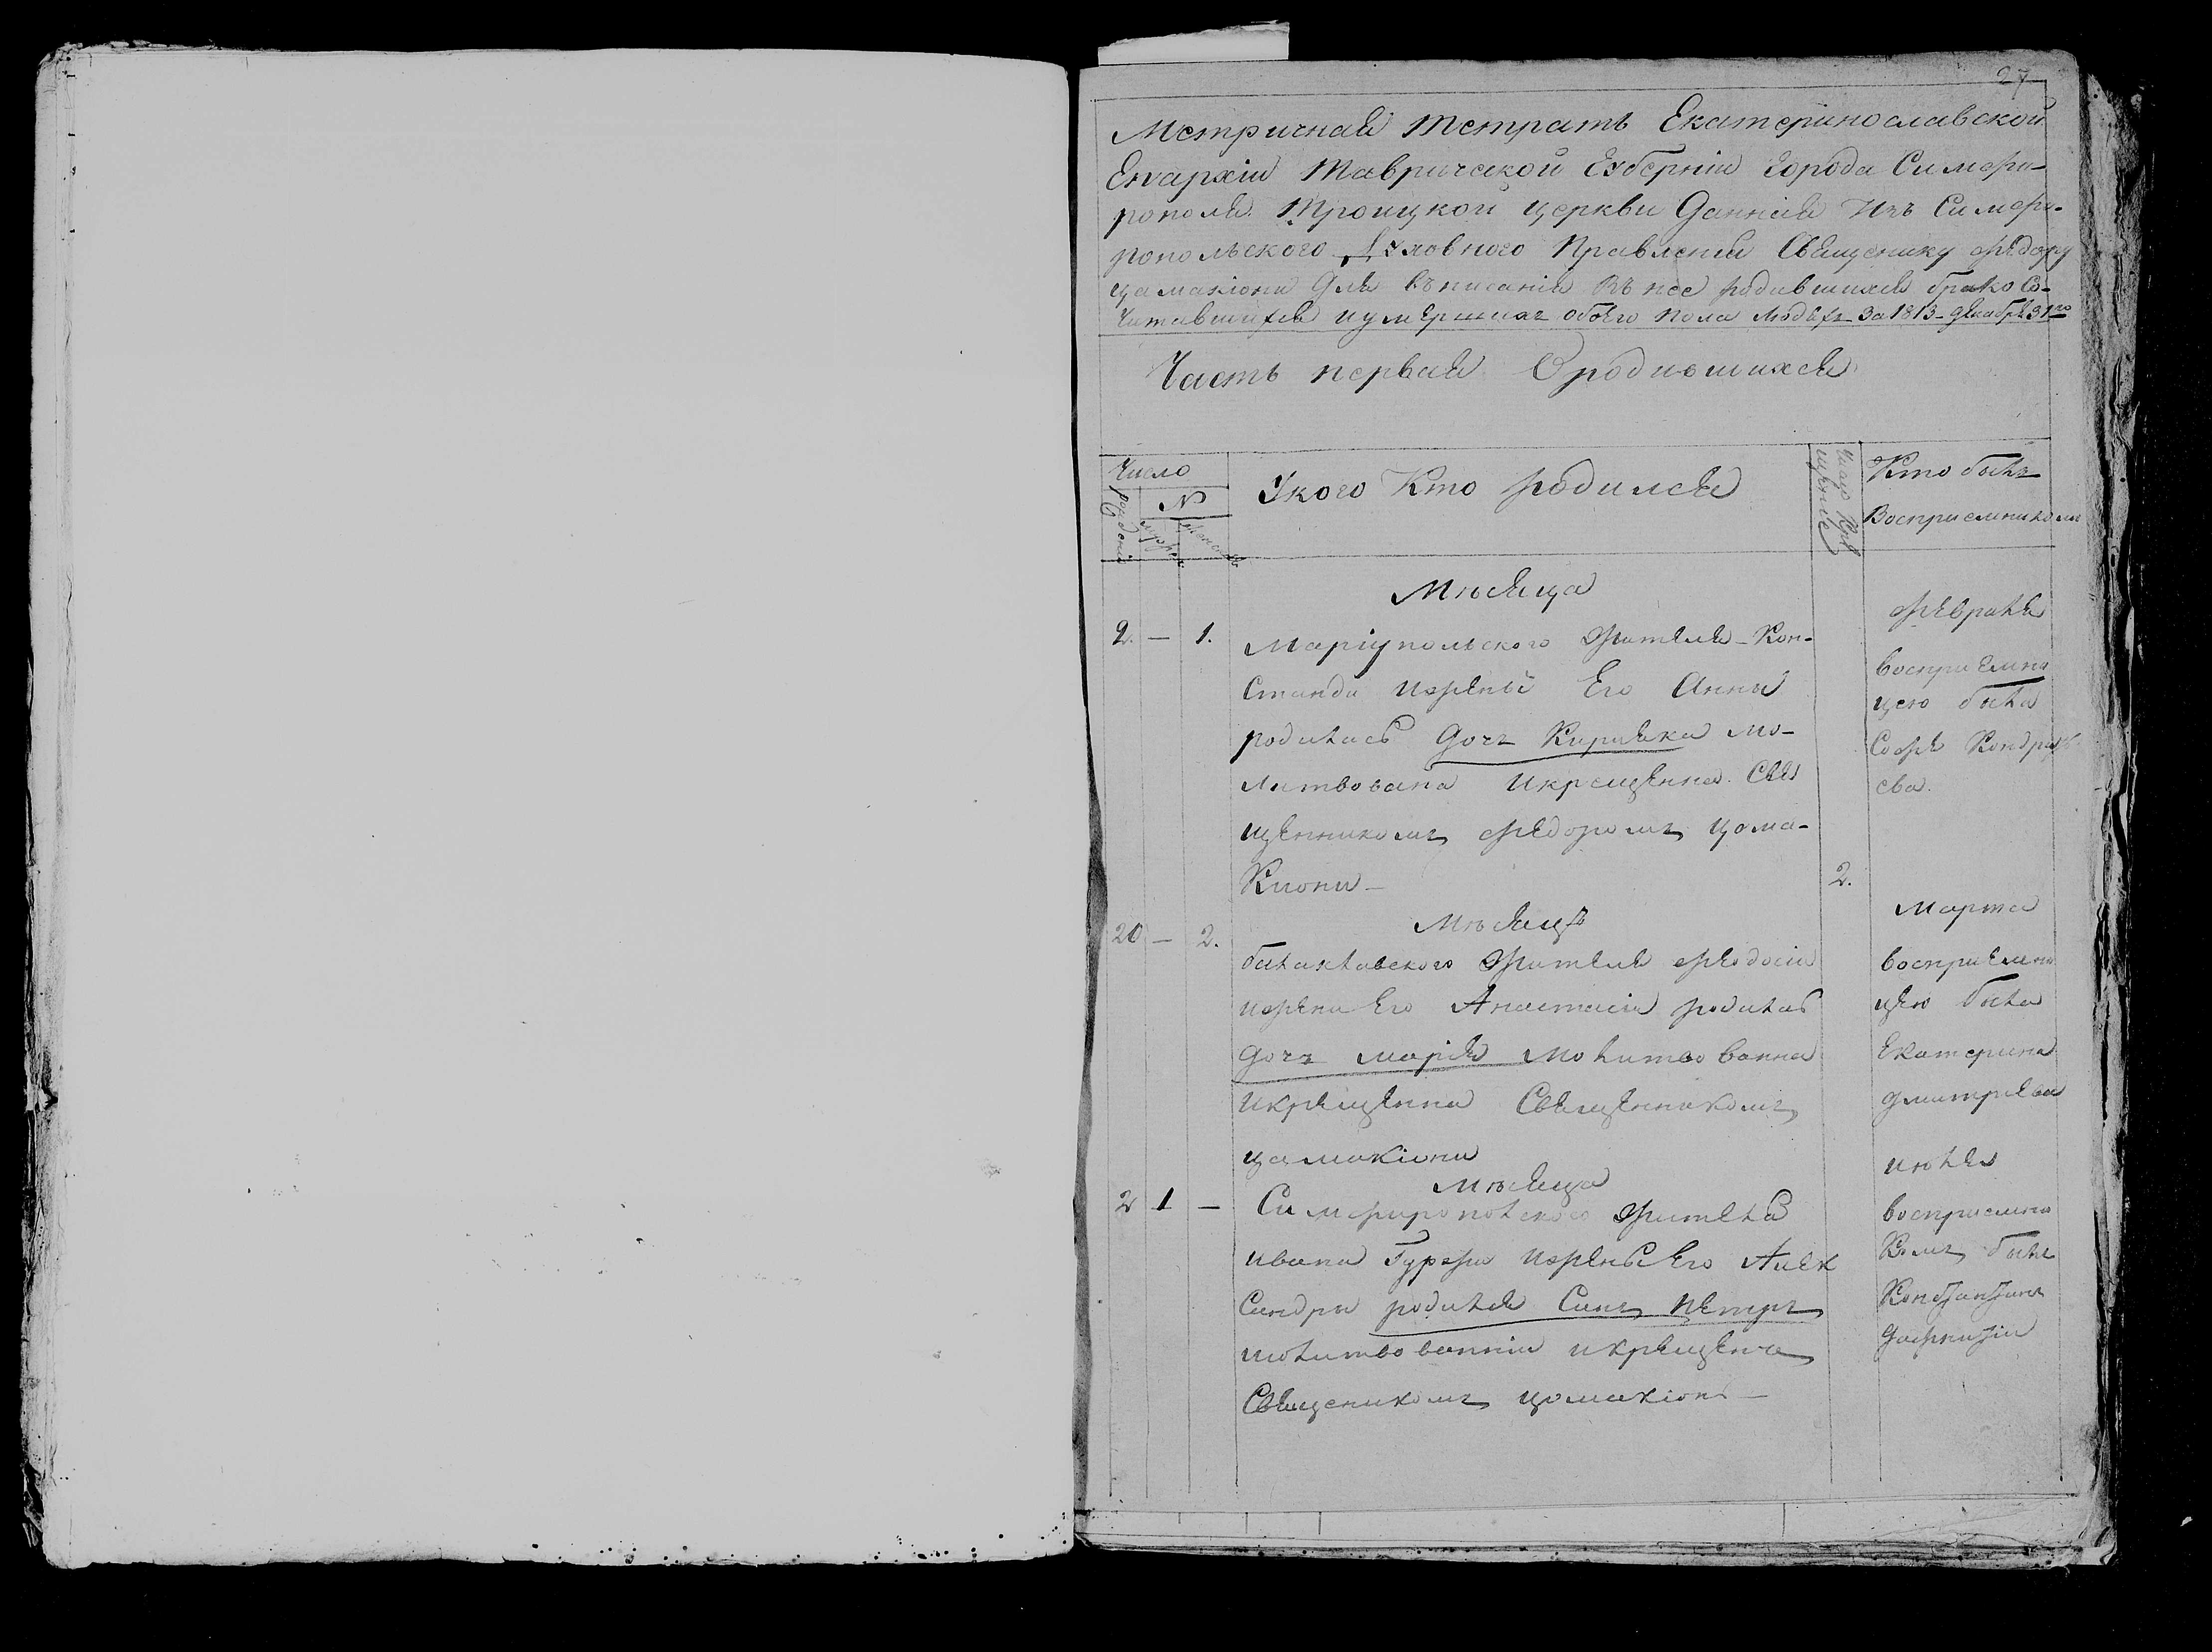 27
Метричная тетрать Екатеринославской
Епархіи Таврической Губерніи города Симфе-
рополя Троицкой церкви Данная Изъ Симфе-
ропольского Духовного Правленія Свящснику Федору
Цамакіони Для въписанія Въ нее родившихся брако Со-
читавшихся иумершихъ обоего пола людехъ За 1813 декабря 31го
Часть первая О родившихся
Число
рожденія
№
мужеск
женска
У кого Кто родился
число Кре
щенія
Кто былъ
Восприемникомъ
Мъсяца
февраля
2. — 1.
Маріупольского жителя Кон-
станди ижены Его Анны
родилась дочь Кирияка мо-
литвована Икрещенна Свя
щенникомъ федоромъ цома-
Киони —
2.
восприемни
цею была
Софя Кондрать
ева.
Мъсяца
Марта
20 — 2.
балаклавского жителя феодосіи
ижены Его Анастасіи родилас
дочь марія молитвованна
Икрещенна Священникомъ
цамакіони
восприемни
цею была
Екатерина
дмитриева
Мъсяца
июля
2 1 —
Симфиропольского жителя
ивана Гуржи ижены Его Алек
сандры родился Синъ петръ
молитвованни икрещенъ
Священикомъ цомакіони —
восприемни
комъ былъ
Константинъ